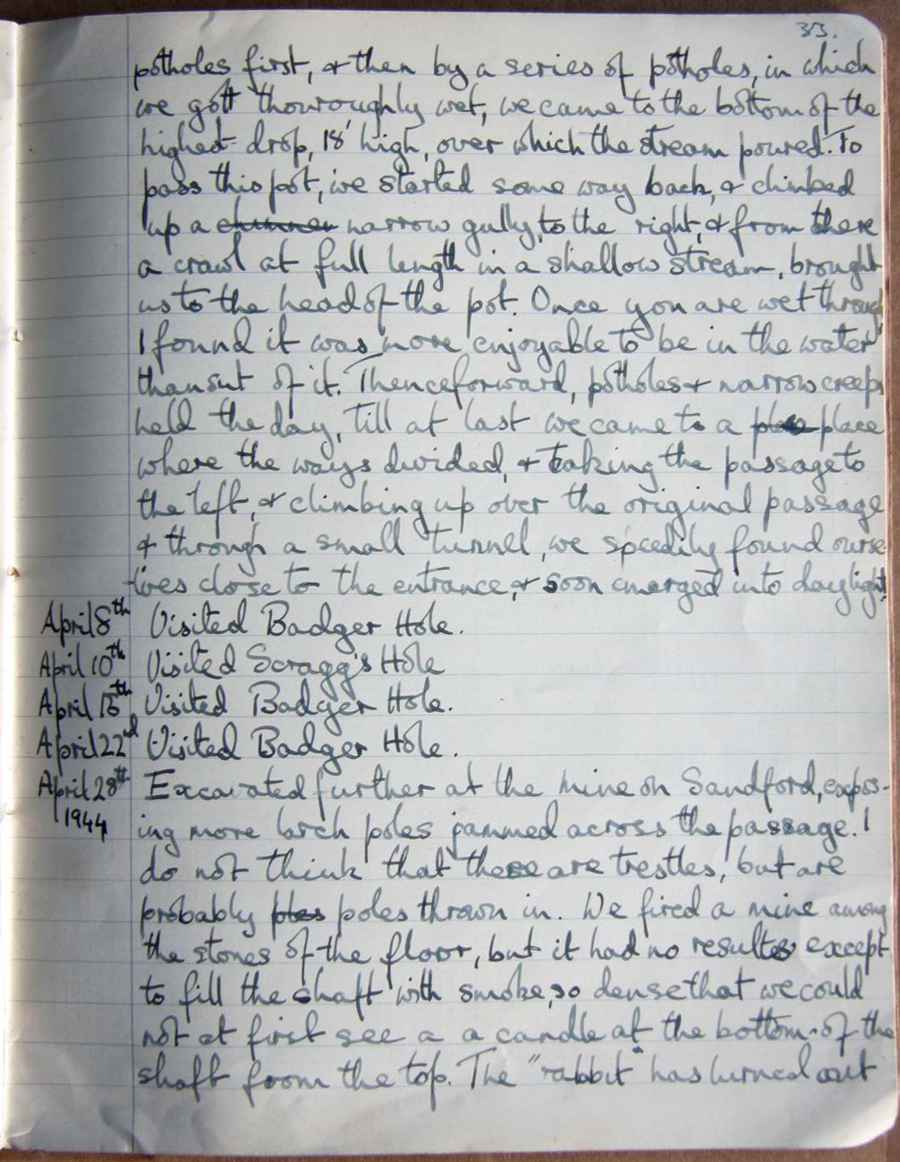 33.
potholes first, & then by a series of potholes, in which
we gott thouroughly wet, we came to the bottom of the
highest drop, 18' high, over which the stream poured. To
pass this pot, we started some way back, & climbed
up a narrow gully, to the right, & from there
a crawl at full length in a shallow stream, brought
us to the head of the pot. Once you are wet through
I found it was more enjoyable to be in the water
than out of it. Thenceforward, potholes & narrow creeps
held the day, till at last we came to a place
where the ways divided, & taking the passage to
the left, & climbing up over the original passage
& through a small tunnel, we speedily found ourse-
lves close to the entrance, & soon emerged into daylight.
April 8th Visited Badger Hole.
April 10th Visited Scragg's Hole
April Visited Badger Hole.
April 22nd Visited Badger Hole.
April 28th Excavated further at the mine on Sandford, expos-
1944 ing more larch poles jammed across the passage. I
do not think that these are trestles, but are
probably poles thrown in. We fired a mine among
the stones of the floor, but it had no results except
to fill the shaft with smoke, so dense that we could
not at first see a a candle at the bottom of the
shaft from the top. The "rabbit" has turned out